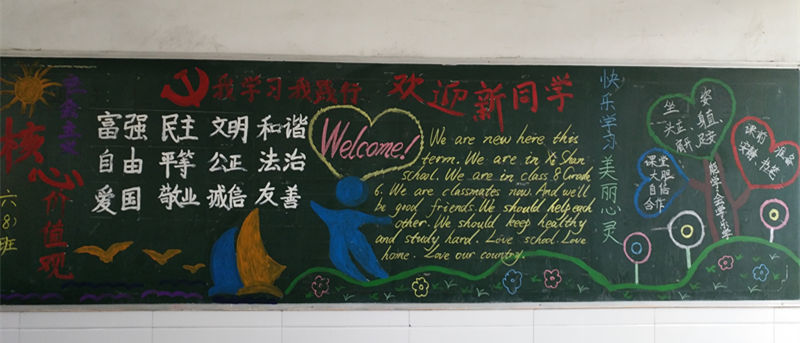 社会主义
核心价值观
六(8)班
我学习我践行
富强 民主 文明 和谐
自由 平等 公正 法治
爱国 敬业 诚信 友善
欢迎新同学
Welcome!
We are new here this
term. We are in Xi Shan
school. We are in class 8 Grade
6. We are classmates now. And we'll
be good friends. We should help each
other. We should keep healthy
and study hard. Love school. Love
home. Love our country.
快乐学习美丽心灵
坐姿
头正 身直
肩平 足安
课堂
大胆
自信
合作
课前准备
安静
能学会学乐学